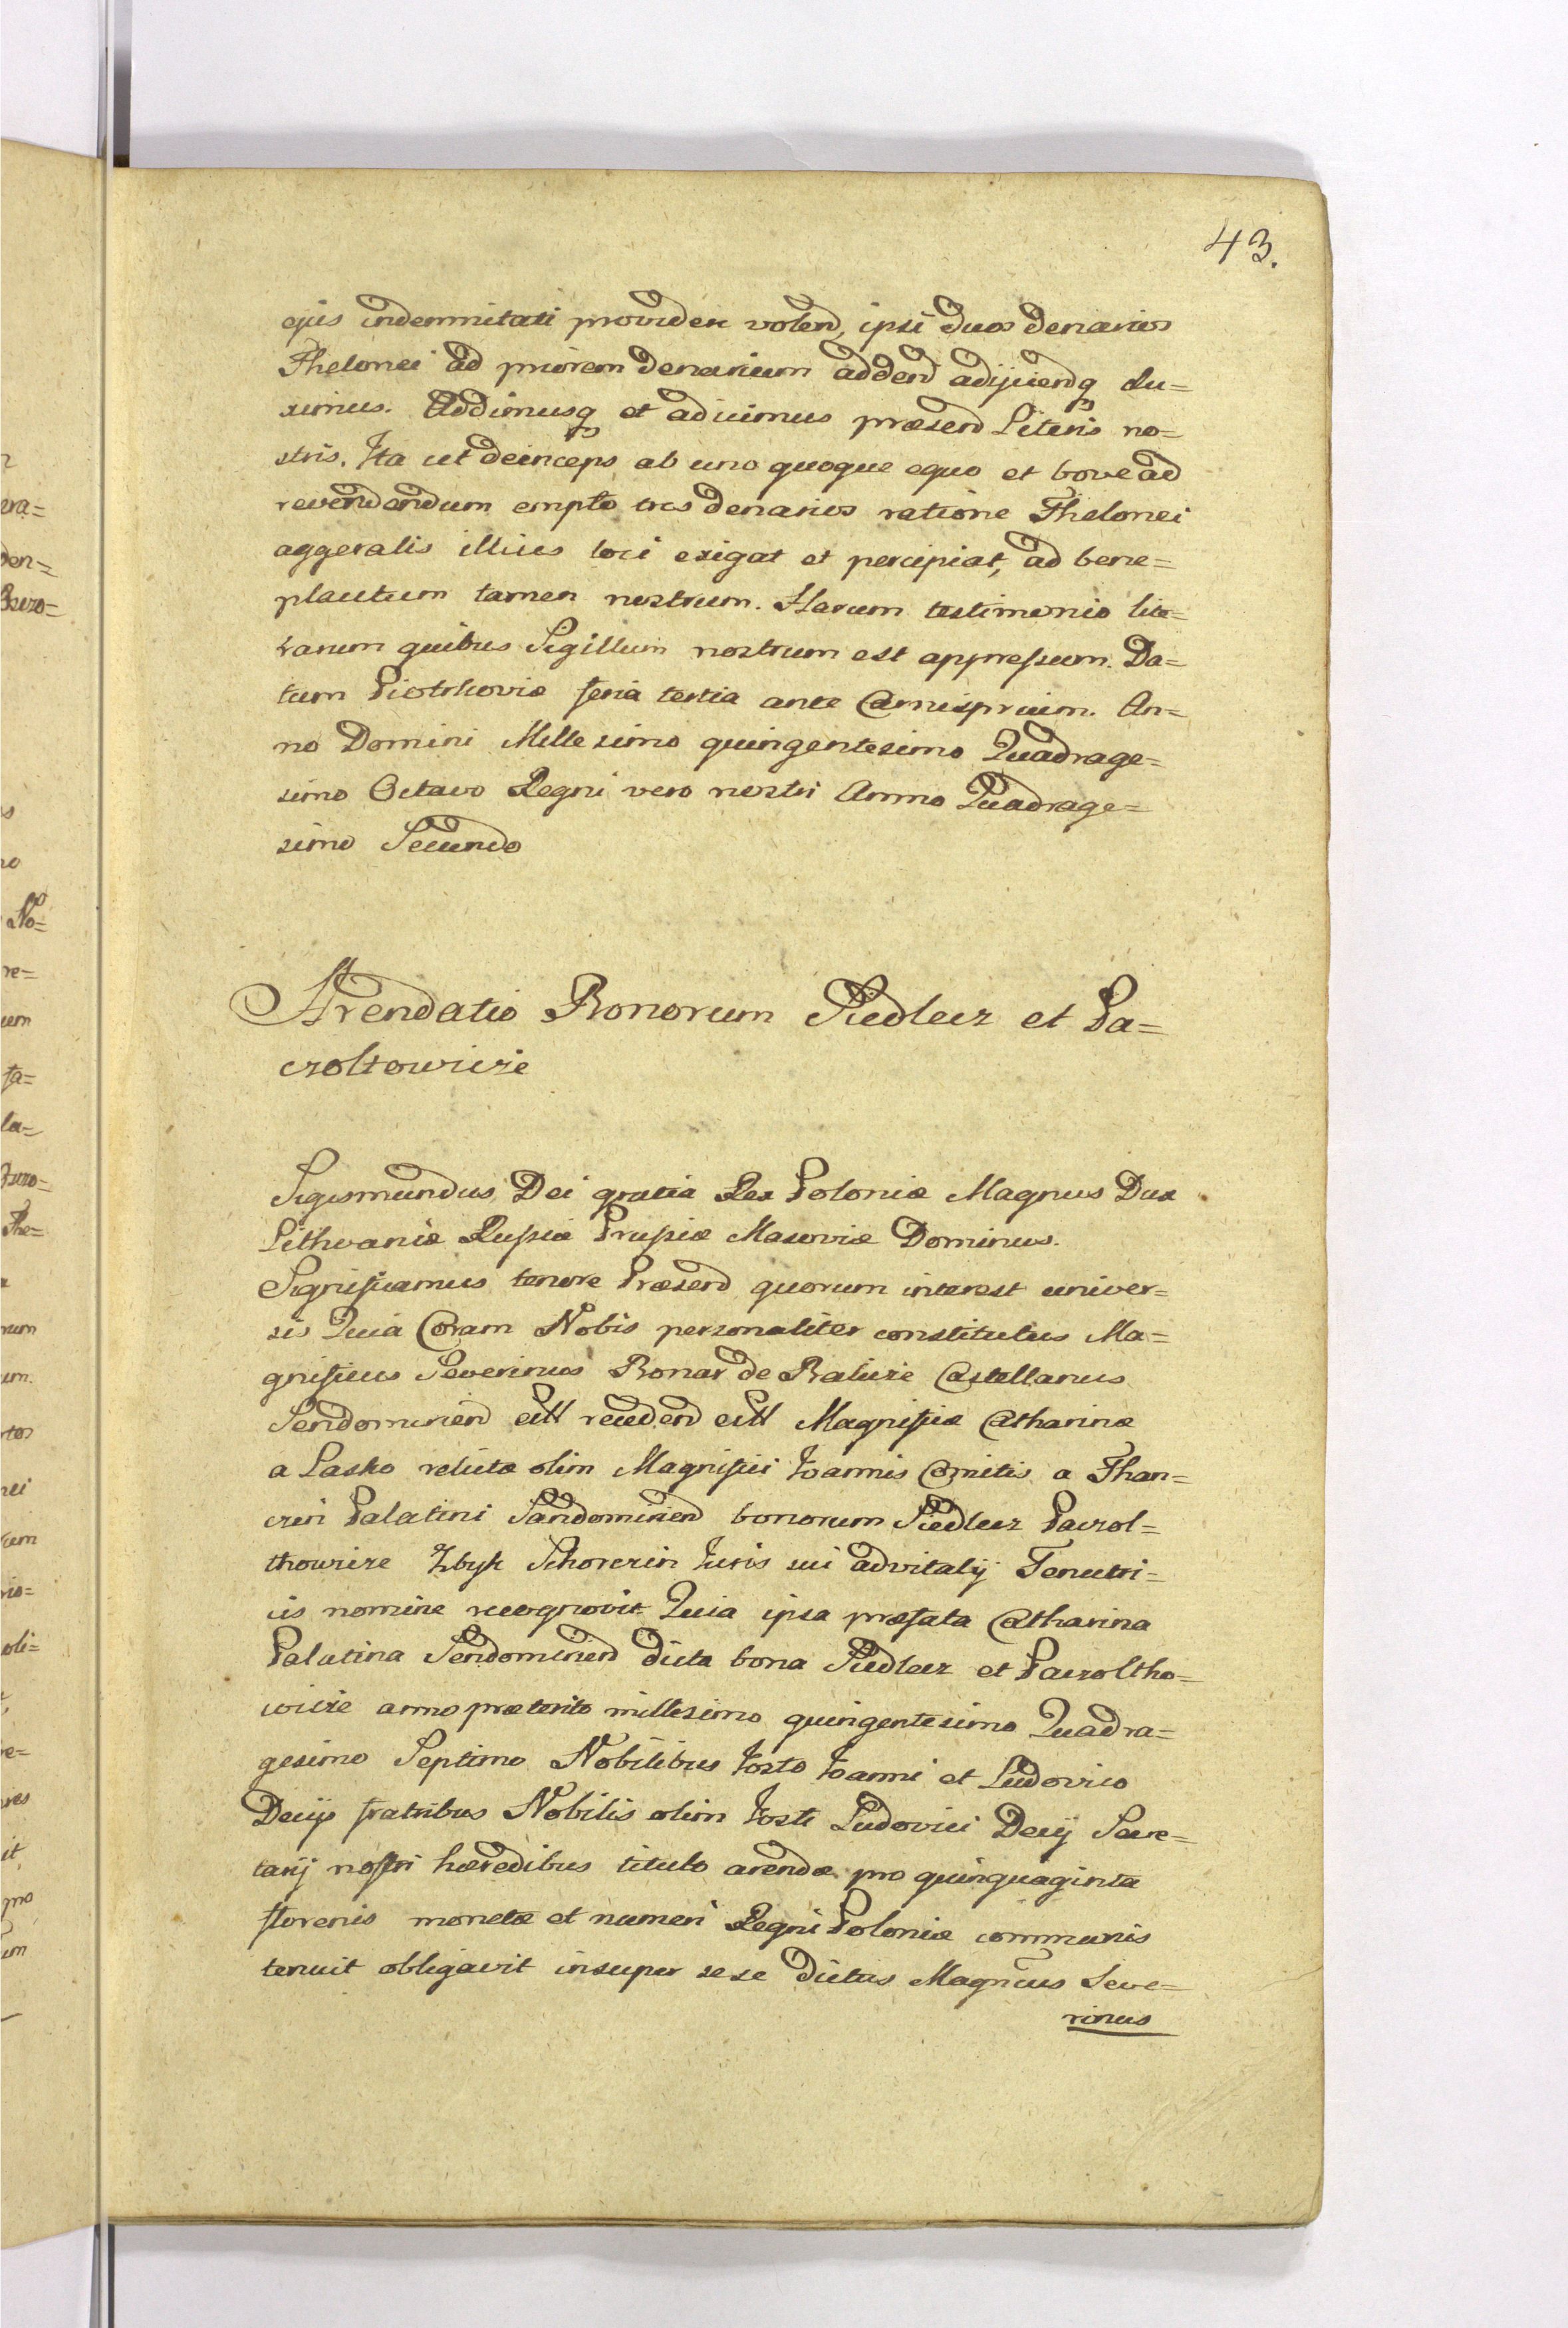 43.
ejus indemnitati providere volend, ipsi duos denarios
Thelonei ad priorem denarium addend adijciendq du=
ximus. Addimusq et adicimus præsend Literis no=
stris. Ita ut deinceps ab uno quoque equo et bove ad
revendendum empto tres denarios ratione Thelonei
aggeralis illius loci exigat et percipiat, ad bene=
placitum tamen nostrum. Harum testimonio lite=
rarum quibus Sigillum nostrum est appressum. Da=
tum Piotrkoviæ feria tertia ante Carnisprivium. An=
no Domini Millesimo quingentesimo Quadrage=
simo Octavo Regni vero nostri Anno Quadrage=
simo Secundo
Arendatio Bonorum Siedlecz et Pa=
czoltowicze
Sigismundus Dei gratia Rex Poloniæ Magnus Dux
Lithvaniæ Russiæ Prussiæ Masoviæ Dominus.
Significamus tenore Præsend quorum interest univer=
sis Quia Coram Nobis personaliter constitutus Ma=
gnificus Severinus Bonar de Balicze Castellanus
Sendomirien
Magnificæ Catharinæ
a Lasko relictæ olim Magnifici Joannis Comitis a Than=
czin Palatini Sandomirien bonorum Siedlecz Paczol=
thowicze Zbyk Schorczin Juris sui advitalij Tenutri=
cis nomine recognovit Quia ipsa præfata Catharina
Palatina Sendomirien dicta bona Siedlecz et Paczoltho=
wicze anno præterito millesimo quingentesimo Quadra=
gesimo Septimo Nobilibus Josto Joanni et Ludovico
Decijs fratribus Nobilis olim Josti Ludovici Decij Secre=
tarij nostri hæredibus titulo arendæ pro quinquaginta
florenis monetæ et numeri Regni Poloniæ communis
tenuit obligavit insuper sese dictus Magncus Seve=
rinus